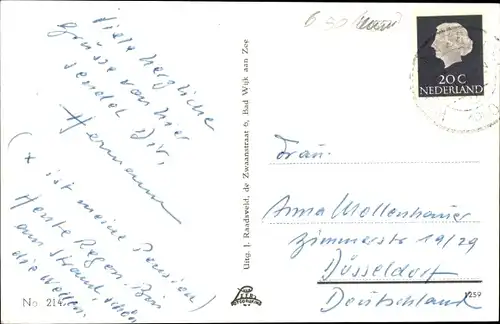 Viele herzliche
Grüsse von hier
sendet Dir,
Hermann
(+ ist meine Pension)
Heute Regen. Bin
am Strand, schön
die Wellen.
No. 214
Uitg. J. Randsveld, de Zwaanstraat 6, Bad Wijk aan Zee
6
20 C
NEDERLAND
Frau.
Anna Mollenhauer
Zimmerstr 19/29
Düsseldorf
Deutschland
1259